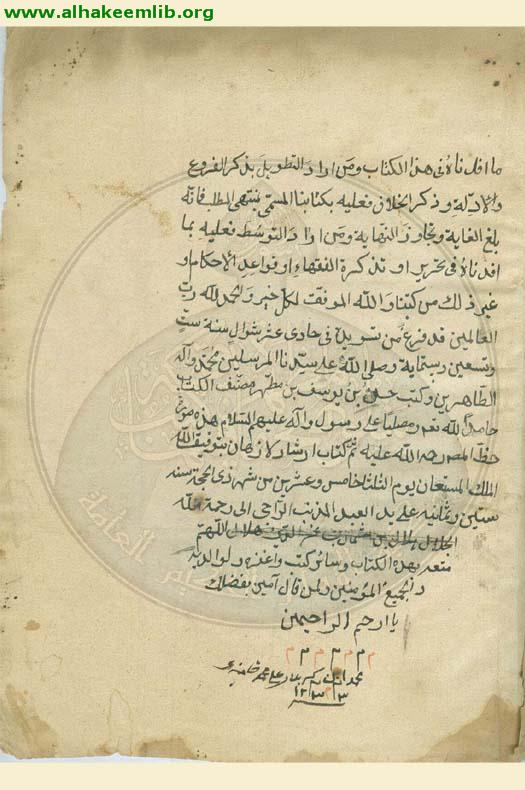 www.alhakeemlib.org
ما افدناه في هذا الكتاب ومن اراد التطويل بذكر الفروع
والادلة وذكر الخلاف فعليه بكتابنا المسمى بمنتهى المطلب فانه
بلغ الغاية وتجاوز النهاية ومن اراد التوسط فعليه بما
افدناه في تحرير او تذكرة الفقهاء او قواعد الاحكام او
غير ذلك من كتبنا والله الموفق لكل خير والحمد لله رب
العالمين قد فرغ من تسويده في حادي عشر شوال سنة ست
وتسعين وستماية وصلى الله على سيدنا المرسلين محمد وآله
الطاهرين وكتب حسن بن يوسف بن مطهر مصنف الكتاب
حامدا لله تعم ومصليا على رسوله وآله عليهم السلام هذه صورة
خط المص رحمه الله عليه تم كتاب ارشاد الاذهان بتوفيق الله
الملك المستعان يوم الثلثا خامس وعشرين من شهر ذي الحجة سنه
ستين وثمانيه على يد العبد المذنب الراجي الى رحمة الله
هلال اللهم
متعه بهذه الكتاب وسائر كتبه واغفره ولوالديه
ولجميع المؤمنين ولمن قال آمين بفضلك
يا ارحم الراحمين
م م م م م م